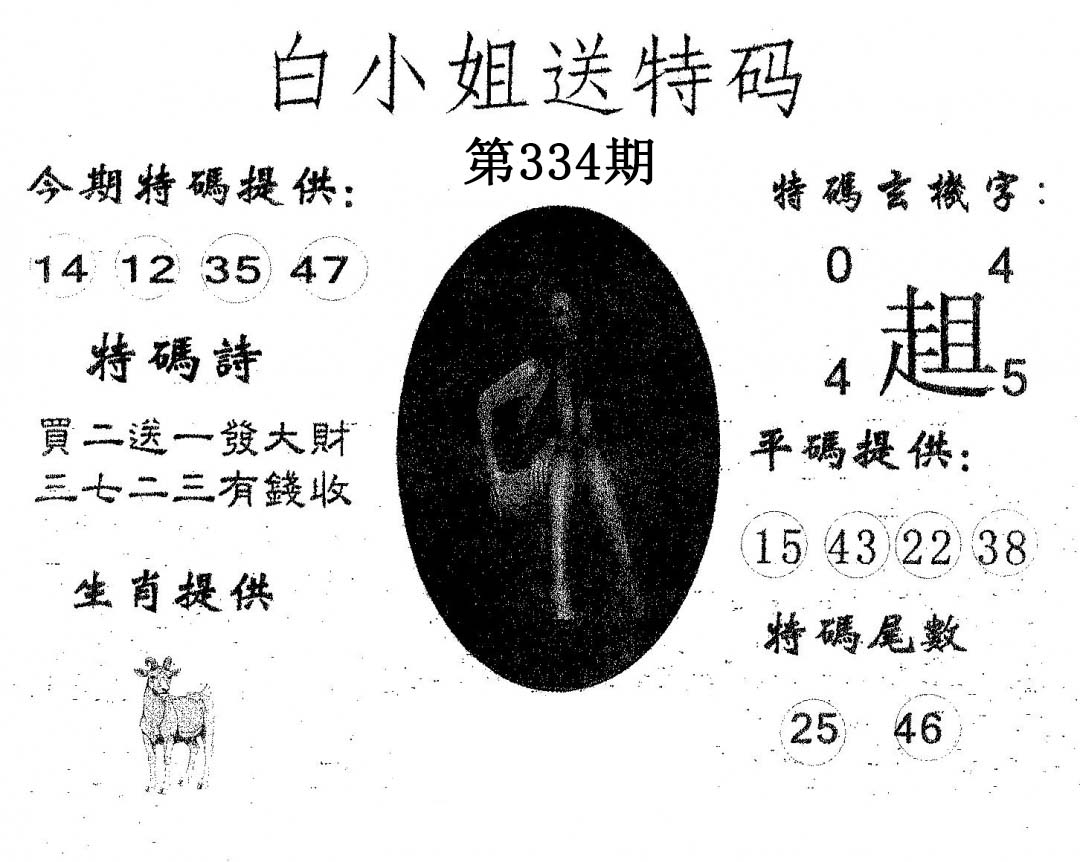 白小姐送特码
第334期
今期特碼提供:
14 12 35 47
特碼詩
買二送一發大財
三七二三有錢收
生肖提供
特碼玄機字:
0 4
趄
4 5
平碼提供:
15 43 22 38
特碼尾數
25 46